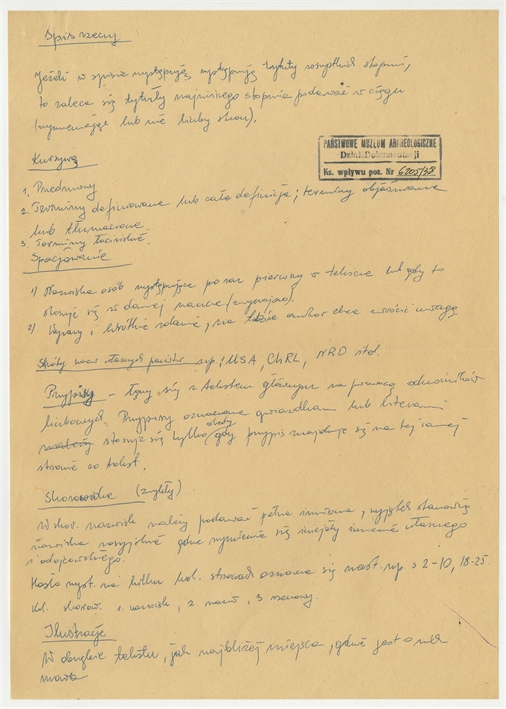 Spis rzeczy
Jeżeli w spisie występują występują tytuły rozmaitych stopni,
to zaleca się tytuły najniższego stopnia podawać w ciągu
(wymieniając lub nie liczby stron).
PAŃSTWOWE MUZEUM ARCHEOLOGICZNE
Dział Dokumentacji
Ks. wpływu poz. Nr 6205/78
Kursywą
1. Przedmowy
2. Terminy definiowane lub cała definicja; terminy objaśniane
lub tłumaczone.
3. Terminy łacińskie.
Spacjowanie
1) Nazwiska osób występujące po raz pierwszy w tekście lub gdy to
stosuje się w danej nauce (zwyczajowo).
2) Wyrazy i krótkie zdania, na które autor chce zwrócić uwagę
Skróty nazw państw np: USA, ChRL, NRD itd.
Przypisy – łączy się z tekstem głównym za pomocą odnośników
liczbowych. Przypisy oznaczone gwiazdkami lub literami
stosuje się tylko gdy przypis znajduje się na tej samej
stronie co tekst.
Skorowidz (zwykły)
W skor. nazwisk należy podawać pełne imiona, wyjątek stanowią
nazwiska rosyjskie gdzie wymienia się inicjały imienia własnego
i odojcowskiego.
Hasło wyst. na kilku kol. stronach oznacza się nast. np: 2–10, 18–25
Kol. skorow. 1. nazwisk, 2. nazw, 3 rzeczowy.
Ilustracje
W obrębie tekstu, jak najbliżej miejsca, gdzie jest o nich
mowa